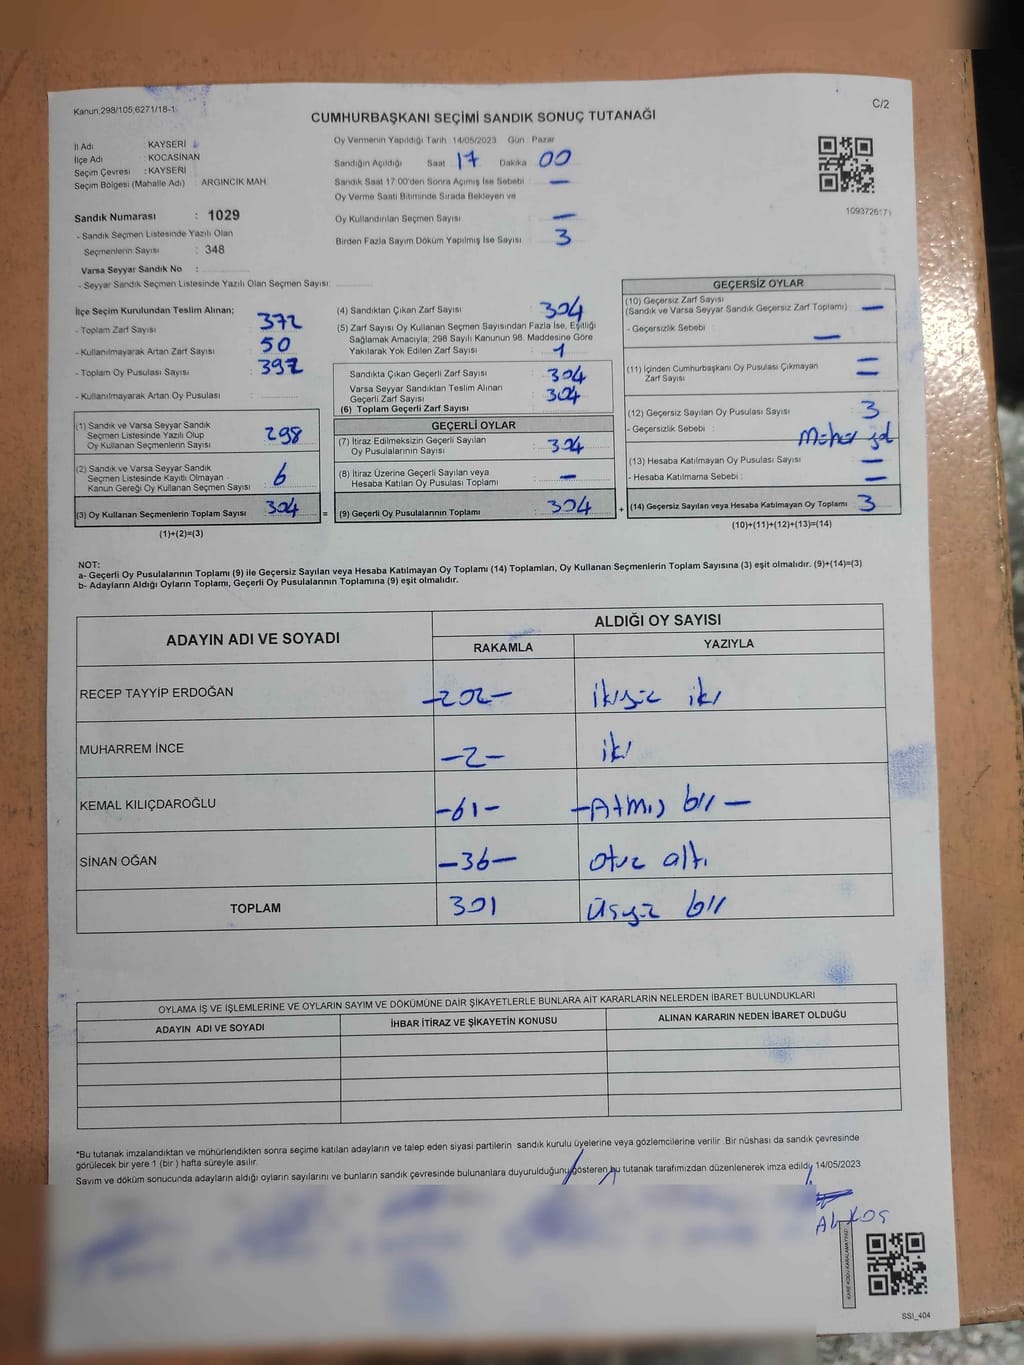 Kanun:298/105,6271/18-1
C/2
CUMHURBAŞKANI SEÇİMİ SANDIK SONUÇ TUTANAĞI
İl Adı : KAYSERİ
İlçe Adı : KOCASİNAN
Seçim Çevresi : KAYSERİ
Seçim Bölgesi (Mahalle Adı) : ARGINCIK MAH.
Sandık Numarası : 1029
- Sandık Seçmen Listesinde Yazılı Olan
Seçmenlerin Sayısı : 348
Varsa Seyyar Sandık No :
- Seyyar Sandık Seçmen Listesinde Yazılı Olan Seçmen Sayısı:
Oy Vermenin Yapıldığı Tarih 14/05/2023 Gün : Pazar
Sandığın Açıldığı Saat 17 Dakika 00
Sandık Saat 17:00'den Sonra Açımış İse Sebebi : —
Oy Verme Saati Bitiminde Sırada Bekleyen ve
Oy Kullandırılan Seçmen Sayısı : —
Birden Fazla Sayım Döküm Yapılmış İse Sayısı : 3
109372617
İlçe Seçim Kurulundan Teslim Alınan;
- Toplam Zarf Sayısı : 372
- Kullanılmayarak Artan Zarf Sayısı : 50
- Toplam Oy Pusulası Sayısı : 392
- Kullanılmayarak Artan Oy Pusulası :
(1) Sandık ve Varsa Seyyar Sandık
Seçmen Listesinde Yazılı Olup
Oy Kullanan Seçmenlerin Sayısı : 298
(2) Sandık ve Varsa Seyyar Sandık
Seçmen Listesinde Kayıtlı Olmayan
Kanun Gereği Oy Kullanan Seçmen Sayısı : 6
(3) Oy Kullanan Seçmenlerin Toplam Sayısı : 304
(1)+(2)=(3)
(4) Sandıktan Çıkan Zarf Sayısı : 304
(5) Zarf Sayısı Oy Kullanan Seçmen Sayısından Fazla İse, Eşitliği
Sağlamak Amacıyla; 298 Sayılı Kanunun 98. Maddesine Göre
Yakılarak Yok Edilen Zarf Sayısı : 1
Sandıkta Çıkan Geçerli Zarf Sayısı : 304
Varsa Seyyar Sandıktan Teslim Alınan
Geçerli Zarf Sayısı : 304
(6) Toplam Geçerli Zarf Sayısı
GEÇERLİ OYLAR
(7) İtiraz Edilmeksizin Geçerli Sayılan
Oy Pusulalarının Sayısı : 304
(8) İtiraz Üzerine Geçerli Sayılan veya
Hesaba Katılan Oy Pusulası Toplamı : —
= (9) Geçerli Oy Pusulalarının Toplamı : 304
GEÇERSİZ OYLAR
(10) Geçersiz Zarf Sayısı
(Sandık ve Varsa Seyyar Sandık Geçersiz Zarf Toplamı) : —
- Geçersizlik Sebebi : —
(11) İçinden Cumhurbaşkanı Oy Pusulası Çıkmayan
Zarf Sayısı
(12) Geçersiz Sayılan Oy Pusulası Sayısı : 3
- Geçersizlik Sebebi :
(13) Hesaba Katılmayan Oy Pusulası Sayısı : —
- Hesaba Katılmama Sebebi : —
+ (14) Geçersiz Sayılan veya Hesaba Katılmayan Oy Toplamı : 3
(10)+(11)+(12)+(13)=(14)
NOT:
a- Geçerli Oy Pusulalarının Toplamı (9) ile Geçersiz Sayılan veya Hesaba Katılmayan Oy Toplamı (14) Toplamları, Oy Kullanan Seçmenlerin Toplam Sayısına (3) eşit olmalıdır. (9)+(14)=(3)
b- Adayların Aldığı Oyların Toplamı, Geçerli Oy Pusulalarının Toplamına (9) eşit olmalıdır.
ADAYIN ADI VE SOYADI
ALDIĞI OY SAYISI
RAKAMLA YAZIYLA
RECEP TAYYİP ERDOĞAN -202- ikiyüz iki
MUHARREM İNCE -2- iki
KEMAL KILIÇDAROĞLU -61- -Atmış bir-
SİNAN OĞAN -36- otuz altı
TOPLAM 301 üçyüz bir
OYLAMA İŞ VE İŞLEMLERİNE VE OYLARIN SAYIM VE DÖKÜMÜNE DAİR ŞİKAYETLERLE BUNLARA AİT KARARLARIN NELERDEN İBARET BULUNDUKLARI
ADAYIN ADI VE SOYADI İHBAR İTİRAZ VE ŞİKAYETİN KONUSU ALINAN KARARIN NEDEN İBARET OLDUĞU
*Bu tutanak imzalandıktan ve mühürlendikten sonra seçime katılan adayların ve talep eden siyasi partilerin sandık kurulu üyelerine veya gözlemcilerine verilir. Bir nüshası da sandık çevresinde
görülecek bir yere 1 (bir) hafta süreyle asılır.
Sayım ve döküm sonucunda adayların aldığı oyların sayılarını ve bunların sandık çevresinde bulunanlara duyurulduğunu gösteren bu tutanak tarafımızdan düzenlenerek imza edildi. 14/05/2023
KARE KODU KARALAMAYINIZ
SSI_404